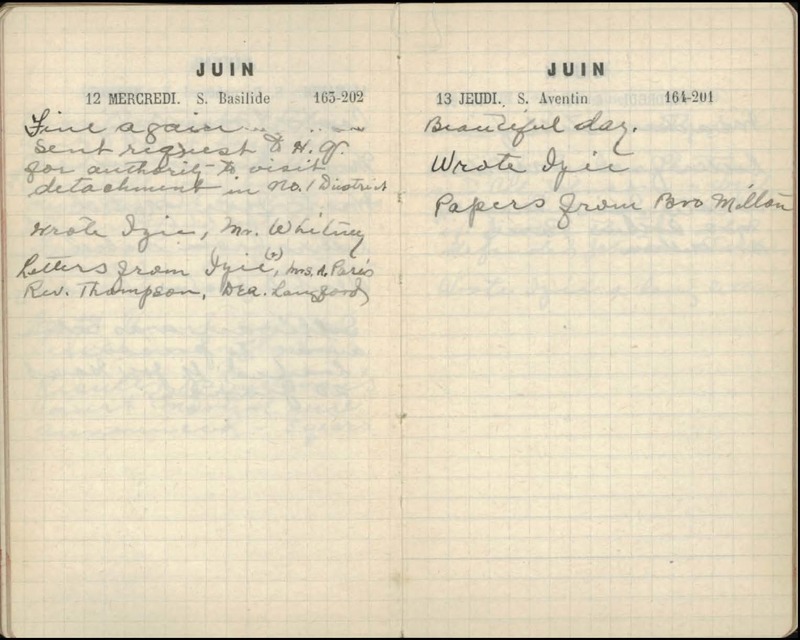 JUIN
12 MERCREDI. S. Basilide 163-202
Fine again
Sent request to H.Q.
for authority to visit
detachment in No. 1 District
Wrote Izie, Mr. Whitney
Letters from Izie, Mrs. A. Paris
Rev. Thompson, Dea. Langford
JUIN
13 JEUDI. S. Aventin 164-201
Beautiful day.
Wrote Izie
Papers from Bro Millon